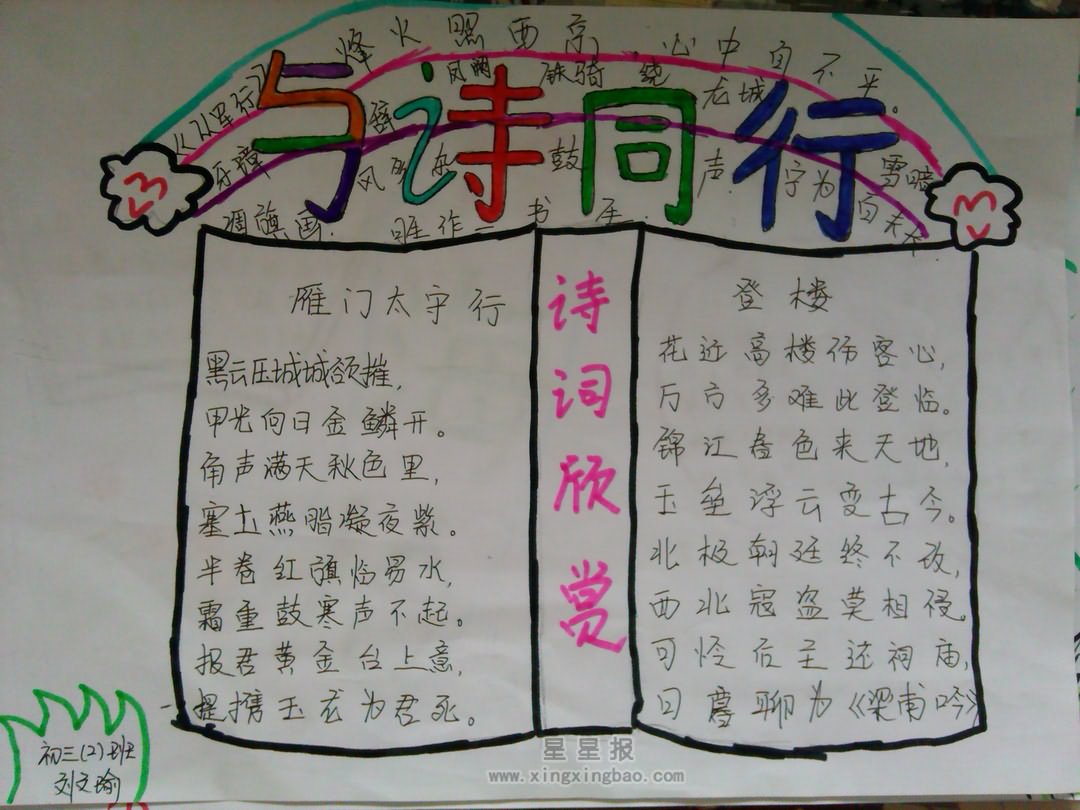 烽火照西京,心中自不平。
《从军行》
牙璋辞凤阙 铁骑绕龙城
与诗同行
雪暗
凋旗画.
风多杂鼓声.
宁为百夫长.
胜作一书生.
雁门太守行
黑云压城城欲摧,
甲光向日金鳞开。
角声满天秋色里,
塞土燕脂凝夜紫。
半卷红旗临易水,
霜重鼓寒声不起。
报君黄金台上意,
提携玉龙为君死。
诗词欣赏
登楼
花近高楼伤客心,
万方多难此登临。
锦江春色来天地,
玉垒浮云变古今。
北极朝廷终不改,
西北寇盗莫相侵。
可怜后主还祠庙,
日暮聊为《梁甫吟》
初三(2)班
刘文瑜
星星报
www.xingxingbao.com